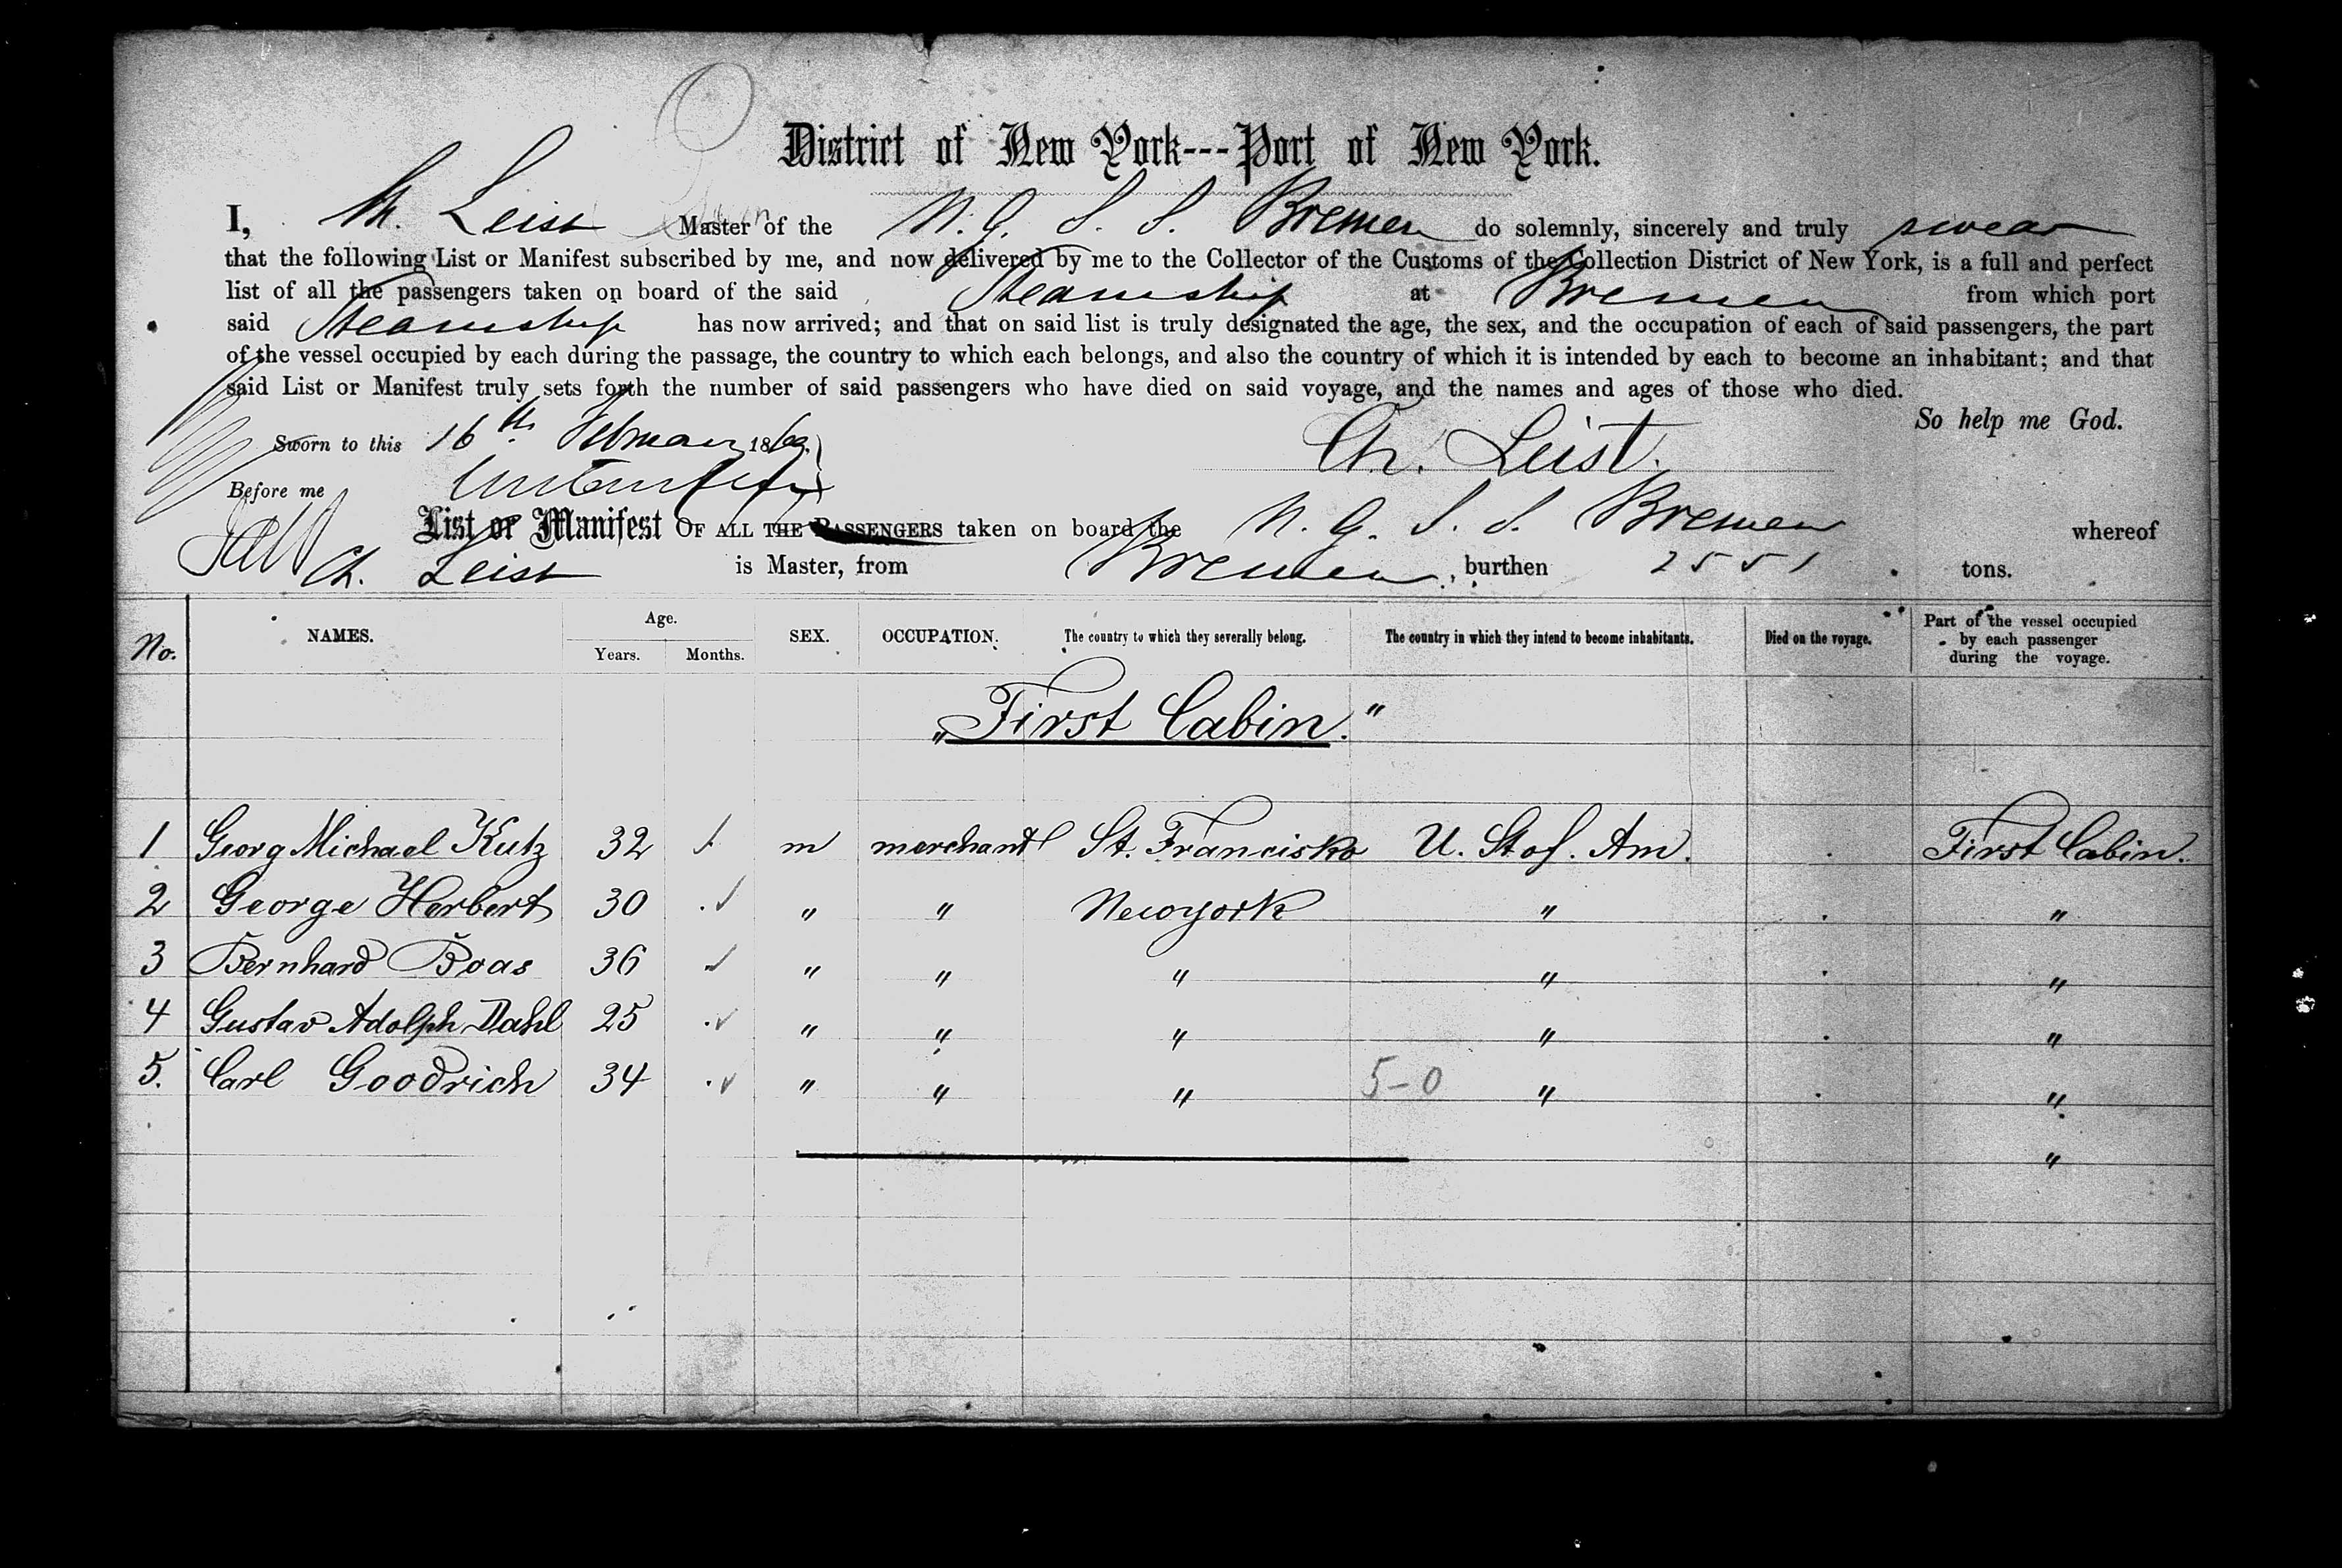 District of New York---Port of New York.
I, Ch. Leist Master of the N. G. S. S. Bremen do solemnly, sincerely and truly swear
that the following List or Manifest subscribed by me, and now delivered by me to the Collector of the Customs of the Collection District of New York, is a full and perfect
list of all the passengers taken on board of the said Steamship at Bremen from which port
said Steamship has now arrived; and that on said list is truly designated the age, the sex, and the occupation of each of said passengers, the part
of the vessel occupied by each during the passage, the country to which each belongs, and also the country of which it is intended by each to become an inhabitant; and that
said List or Manifest truly sets forth the number of said passengers who have died on said voyage, and the names and ages of those who died.
So help me God.
Sworn to this 16th February 1869. Ch. Leist.
Before me
List or Manifest OF ALL THE PASSENGERS taken on board the N. G. S. S. Bremen whereof
Ch. Leist is Master, from Bremen, burthen 2551 tons.
No. NAMES. Age. Years. Months. SEX. OCCUPATION. The country to which they severally belong. The country in which they intend to become inhabitants. Died on the voyage. Part of the vessel occupied by each passenger during the voyage.
„First Cabin."
1 Georg Michael Kutz 32 m merchant St. Francisko U. St of. Am. First Cabin.
2 George Herbert 30 " " Newyork " "
3 Bernhard Boas 36 " " " " "
4 Gustav Adolph Dahl 25 " " " " "
5. Carl Goodrich 34 " " " 5-0 " "
"